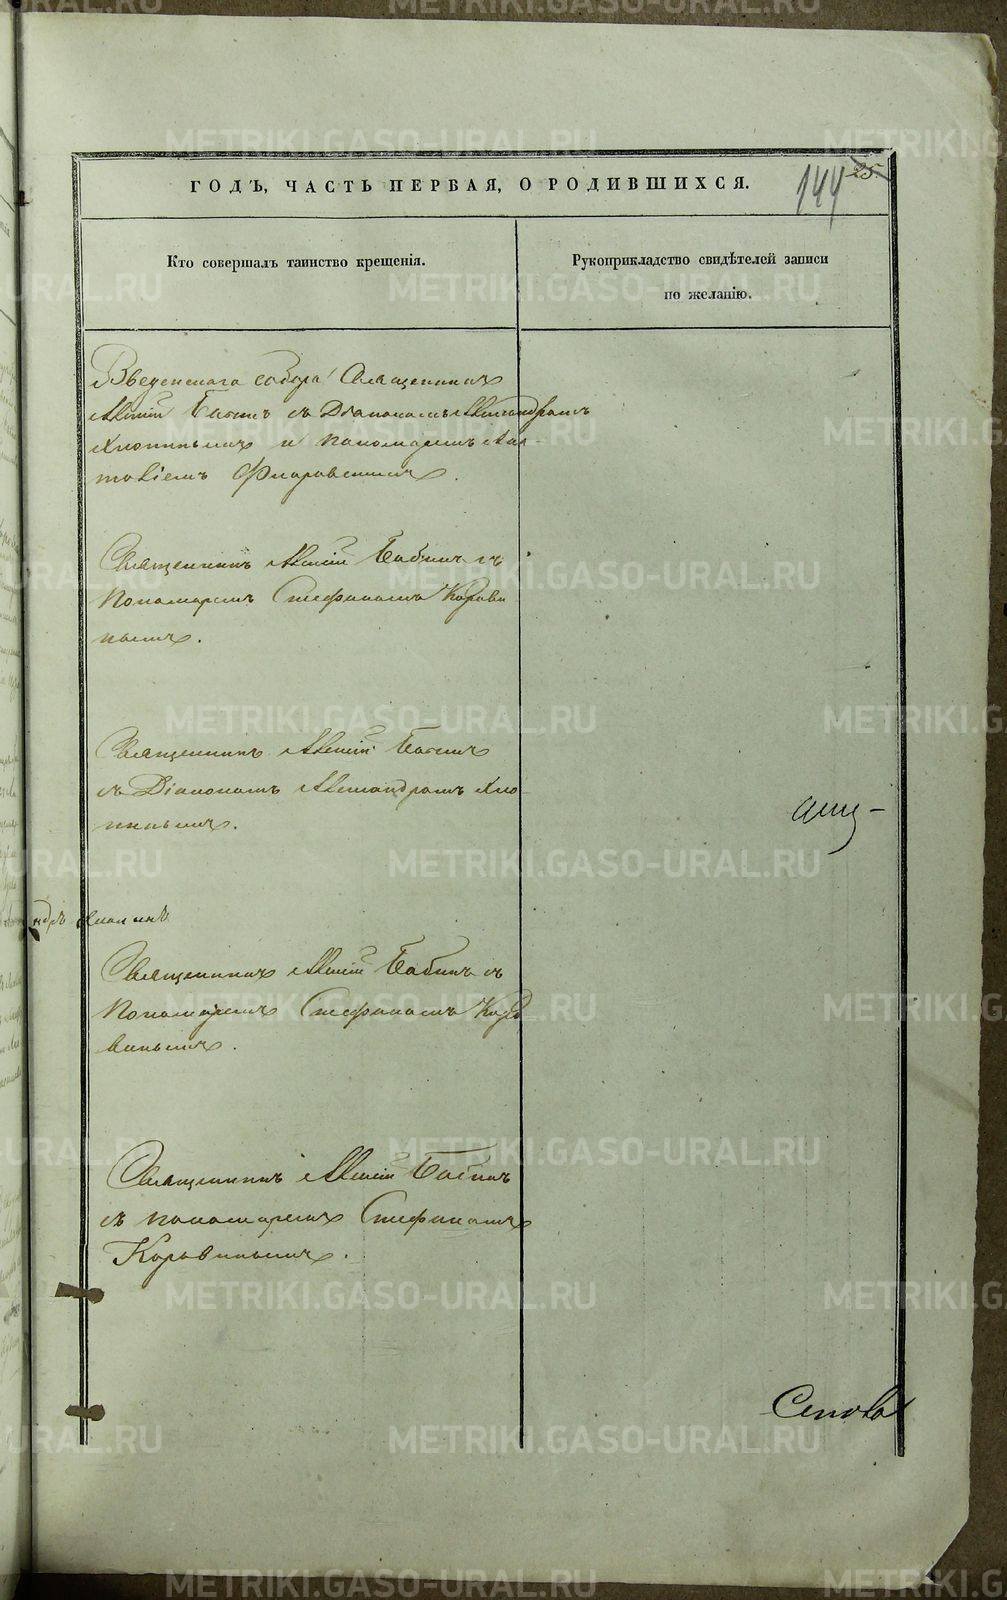 ГОДЪ, ЧАСТЬ ПЕРВАЯ, О РОДИВШИХСЯ.
144
25.
Кто совершалъ таинство крещенія.
Рукоприкладство свидѣтелей записи
по желанію.
Введенскаго собора Священникъ
Алексій Бабинъ съ Діакономъ Александромъ
Хлопинымъ и пономаремъ Ана-
толіемъ Флоровскимъ.
Священникъ Алексій Бабинъ съ
Пономаремъ Стефаномъ Корови
нымъ.
Священникъ Алексій Бабинъ
съ Діакономъ Александромъ Хло-
пинымъ.
Священникъ Алексій Бабинъ съ
Пономаремъ Стефаномъ Коро
винымъ.
Священникъ Алексій Бабинъ
съ пономаремъ Стефаномъ
Коровинымъ.
METRIKI.GASO-URAL.RU